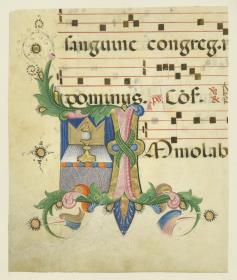 sanguine congreg
dominus. Cõs.
Immolab